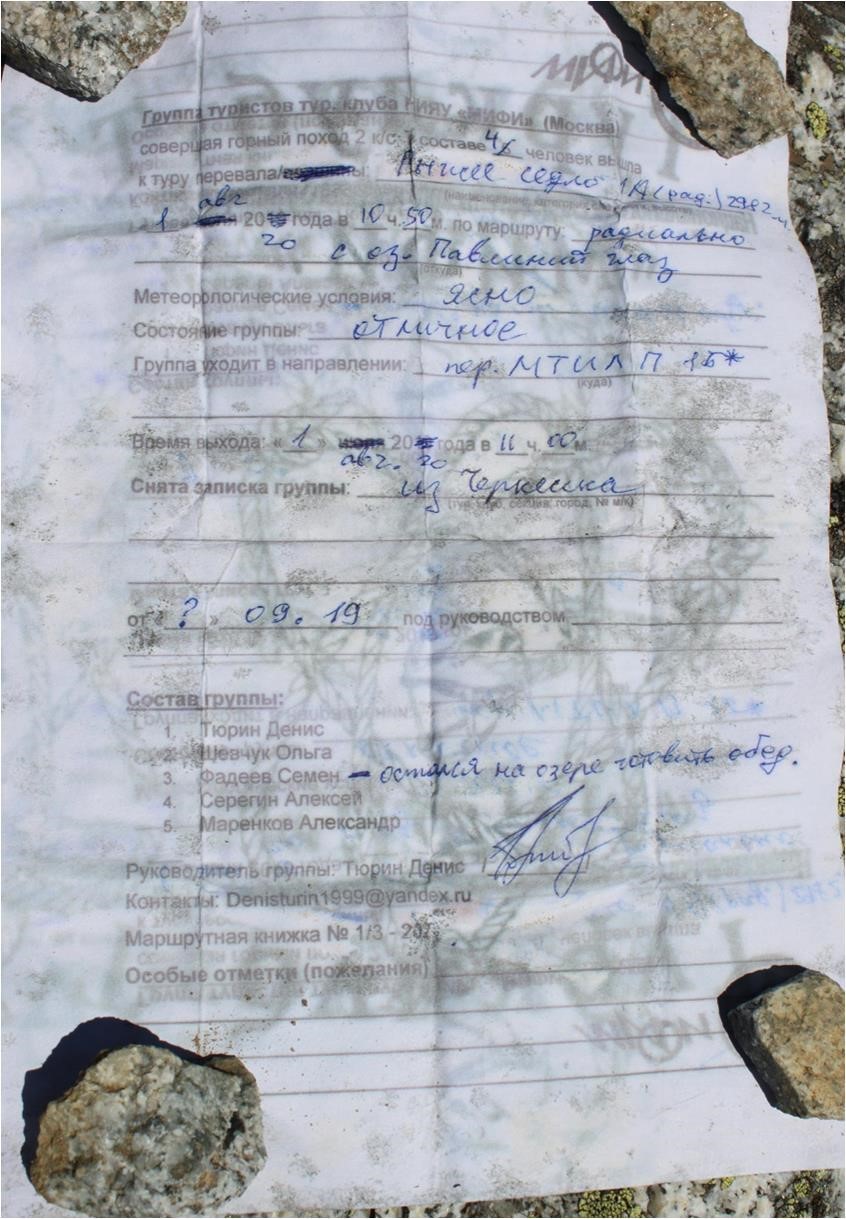 Группа туристов тур. клуба НИЯУ «МИФИ» (Москва)
совершая горный поход 2 к/с, в составе 4х человек вышла
к туру перевала/ Рыжее седло 1А (рад.) 2982 м
1 авг 2020 года в 10 ч. 50 м. по маршруту: радиально
с оз. Павлиний глаз
(откуда)
Метеорологические условия: ясно
Состояние группы: отличное
Группа уходит в направлении: пер. МТИЛП 1Б*
(куда)
Время выхода: «1» авг. 2020 года в 11 ч. 00 м.
Снята записка группы: из Черкесска
(тур. клуб, секция, город, № м/к)
от «?» 09. 19 под руководством
Состав группы:
1. Тюрин Денис
2. Шевчук Ольга
3. Фадеев Семен – остался на озере готовить обед.
4. Серегин Алексей
5. Маренков Александр
Руководитель группы: Тюрин Денис
Контакты: Denisturin1999@yandex.ru
Маршрутная книжка № 1/3 -
Особые отметки (пожелания)